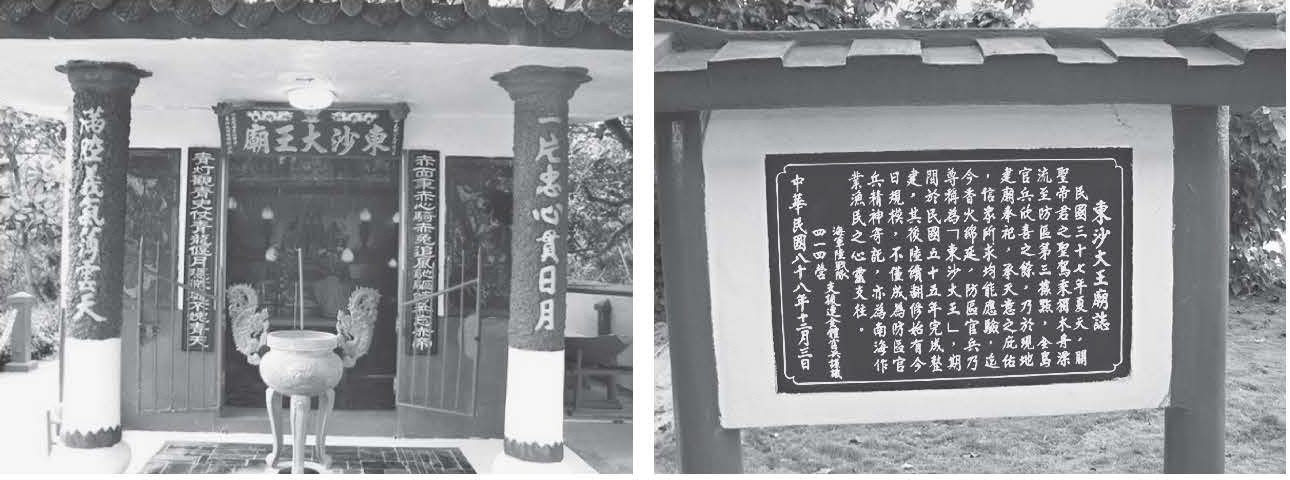 東沙大王廟
一片忠心貫日月
滿腔義氣薄雲天
赤面秉赤心騎赤兔追風馳驅無忘赤帝
青灯觀青史仗青龍偃月隱微不愧青天
東沙大王廟誌
民國三十七年夏天，關
聖帝君之聖駕乘獨木舟漂
流至防區第三據點，全島
官兵欣喜之餘，乃於現地
建廟奉祀，承天意之庇佑
，信眾所求均能應驗，迄
今香火綿延，防區官兵乃
尊稱為「東沙大王」，期
間於民國五十五年完成整
建，其後陸續翻修始有今
日規模，不僅成為防區官
兵精神寄託，亦為南海作
業漁民之心靈支柱。
海軍陸戰隊
四一四營
支援連全體官兵謹識
中華民國八十八年十二月三日